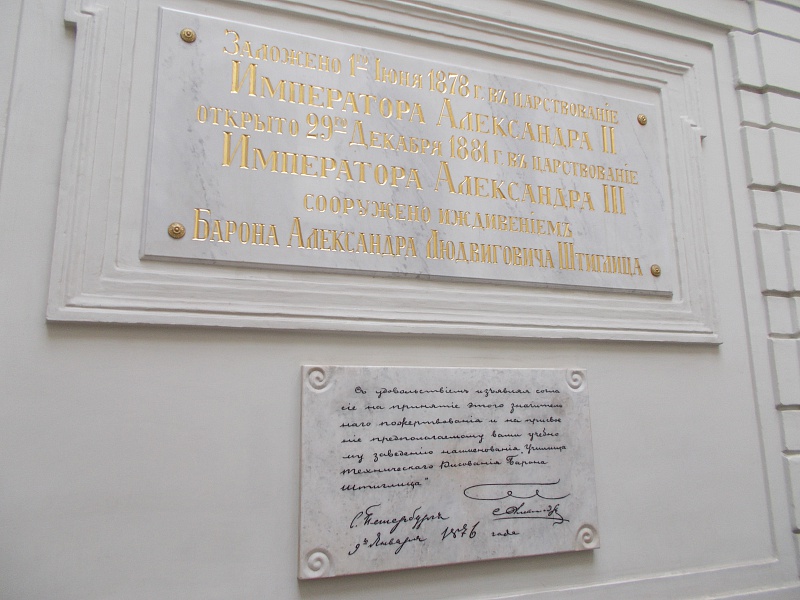 Заложено 1го Iюня 1878 г. въ царствованiе
Императора Александра II
открыто 29го Декабря 1881 г. въ царствованiе
Императора Александра III
сооружено иждивенiемъ
Барона Александра Людвиговича Штиглица
Съ удовольствiемъ изъявляя согла
сiе на принятiе этого значитель
наго пожертвованiя и на присвое
нiе предполагаемому вами учебно
му заведенiю наименованiя „Училища
техническаго Рисованiя Барона
Штиглица"
С. Петербургъ
9го Января 1876 года